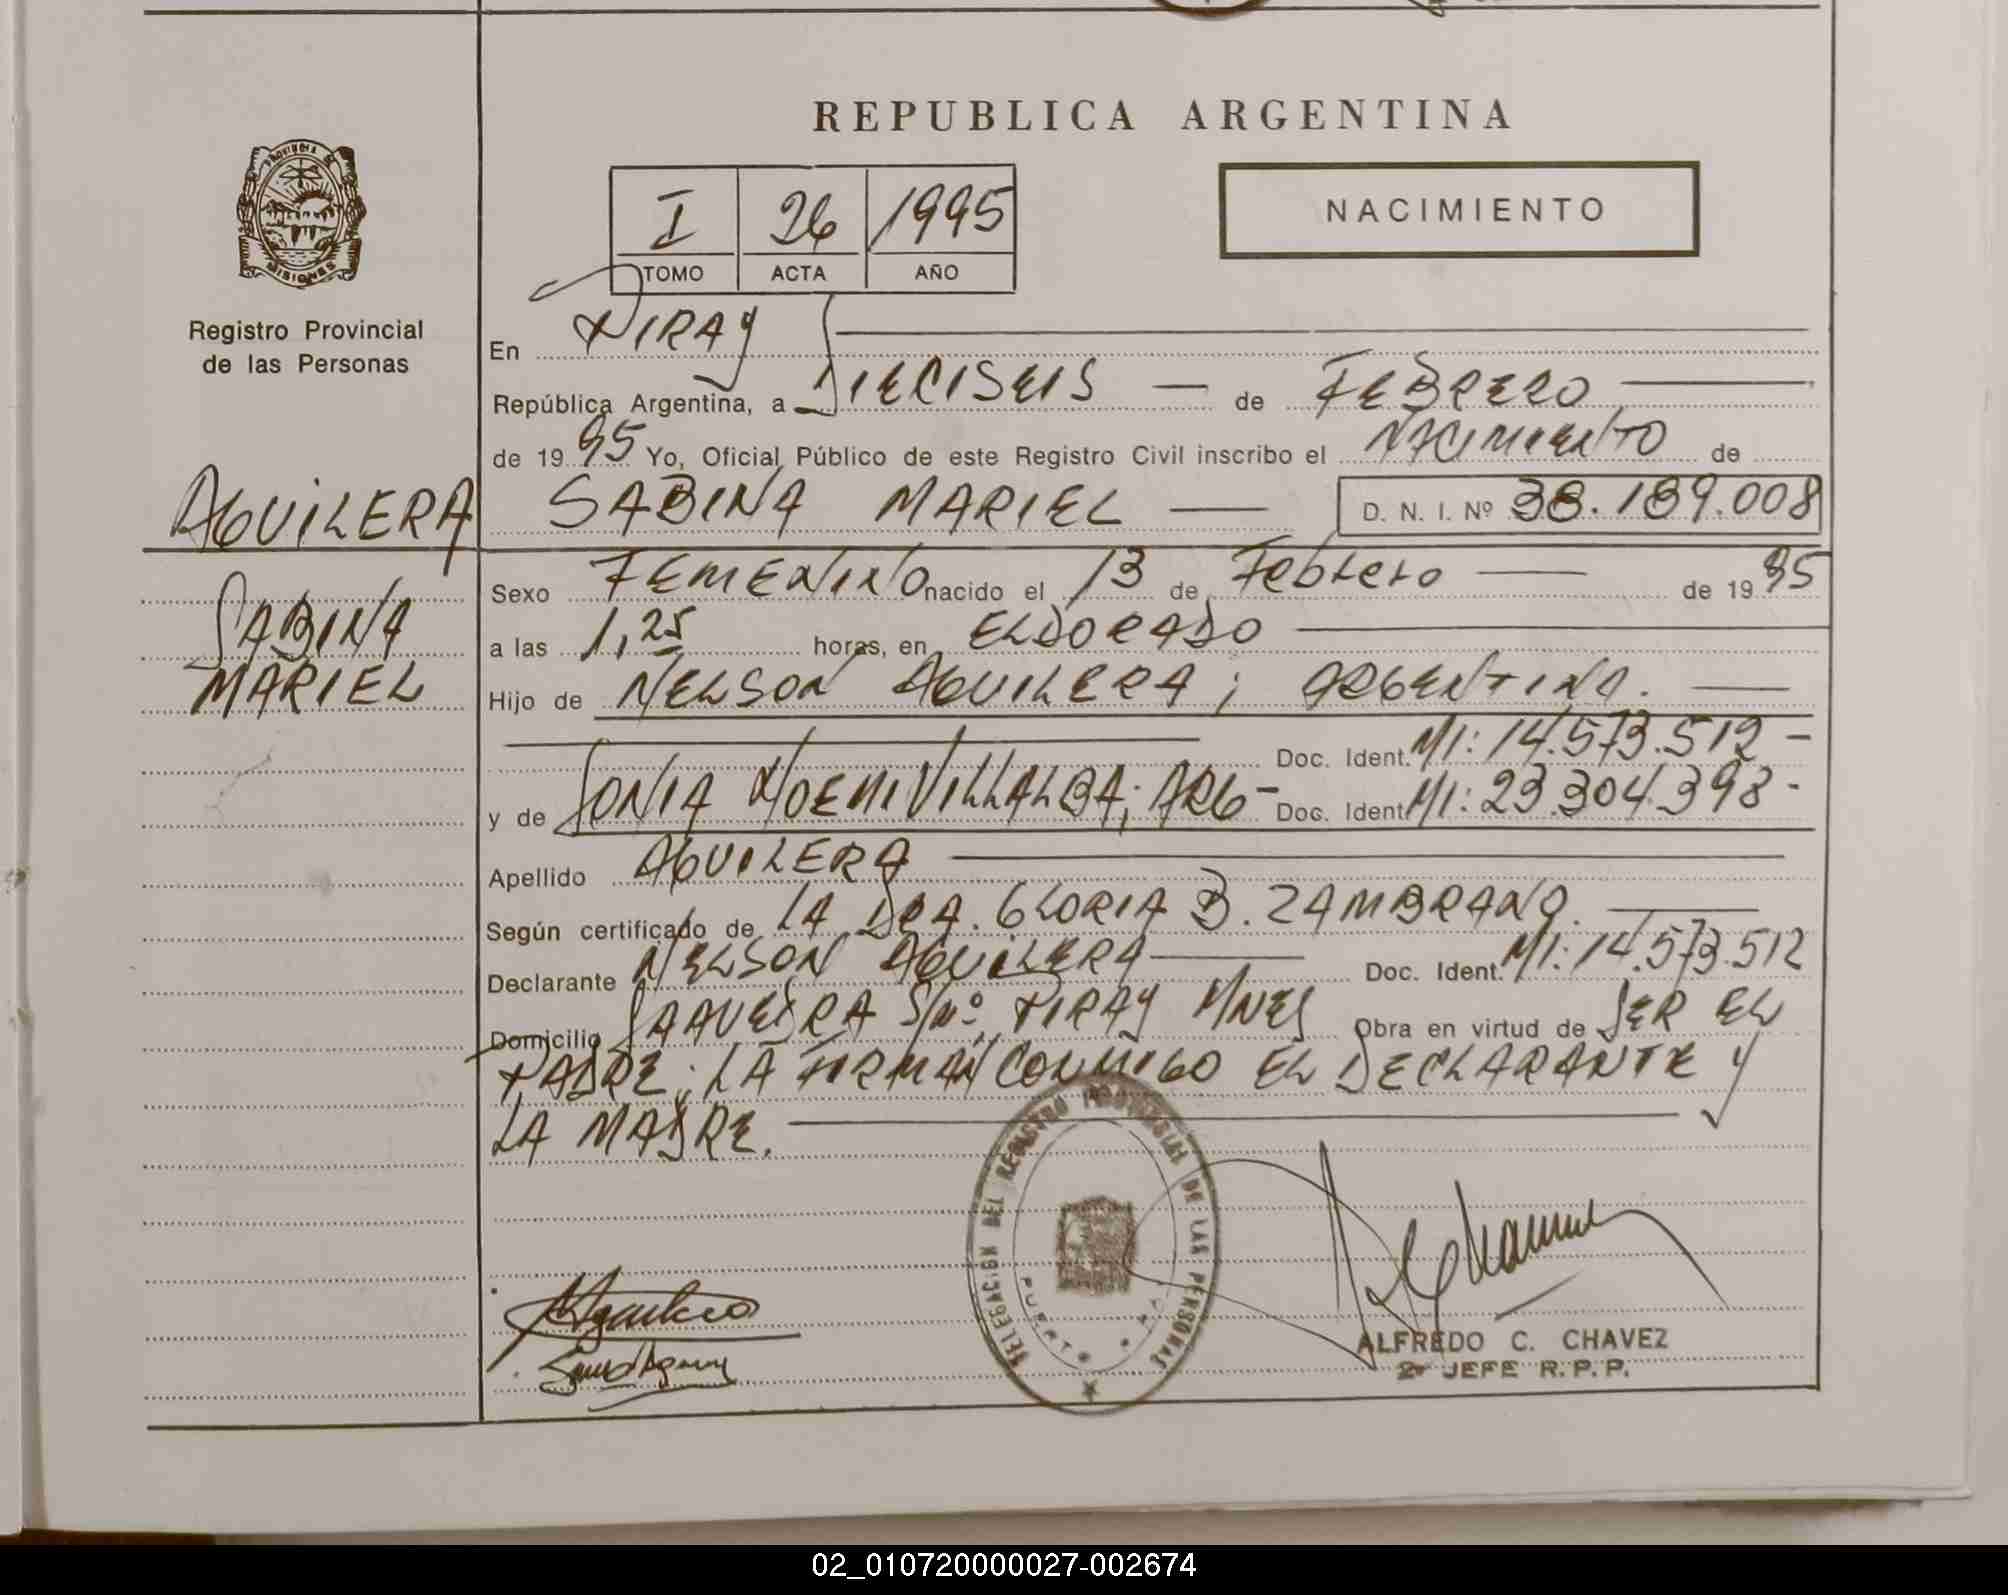 REPUBLICA ARGENTINA
PROVINCIA DE
MISIONES
Registro Provincial
de las Personas
I 26 1995
TOMO ACTA AÑO
NACIMIENTO
En PIRAY
República Argentina, a DIECISEIS de FEBRERO
de 1995 Yo, Oficial Público de este Registro Civil inscribo el NACIMIENTO de
AGUILERA
SABINA MARIEL D. N. I. Nº 38.189.008
SABINA
MARIEL
Sexo FEMENINO nacido el 13 de Febrero de 1995
a las 1,25 horas, en ELDORADO
Hijo de NELSON AGUILERA; ARGENTINA.
Doc. Ident. MI: 14.573.512
y de SONIA NOEMI VILLALBA; ARG- Doc. Ident. MI: 23.304.398-
Apellido AGUILERA
Según certificado de LA DRA. GLORIA B. ZAMBRANO.
Declarante NELSON AGUILERA Doc. Ident. MI: 14.573.512
Domicilio SAAVEDRA S/Nº. PIRAY MNES Obra en virtud de SER EL
PADRE; LA FIRMAN CONMIGO EL DECLARANTE Y
LA MADRE.
DELEGACION DEL REGISTRO PROVINCIAL DE LAS PERSONAS
PUERTO
ALFREDO C. CHAVEZ
JEFE R.P.P.
02_010720000027-002674